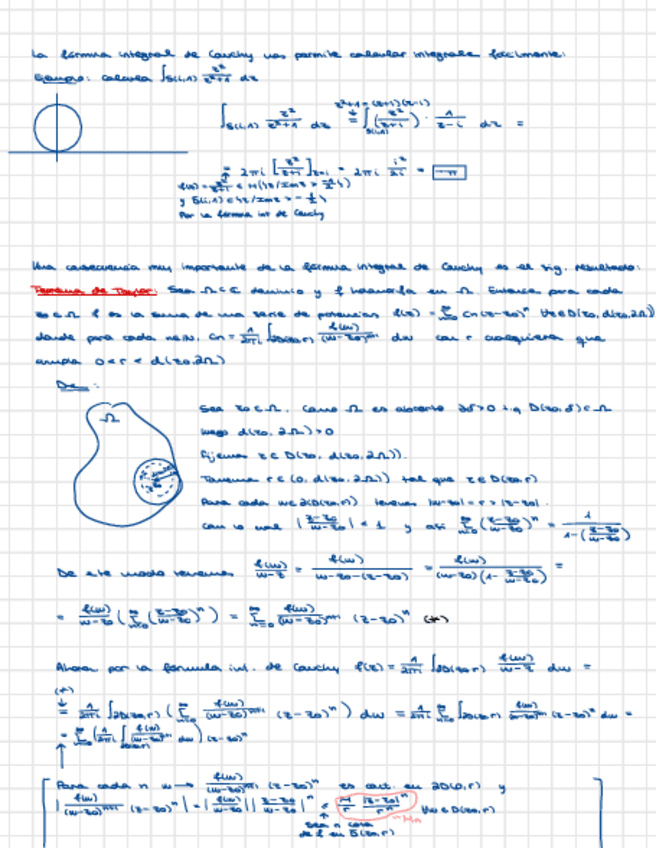 La fórmula integral de Cauchy nos permite calcular integrales fácilmente:
Ejemplo: calcula ∫_{S(i,1)} z²/(z²+1) dz
z²+1=(z+i)(z-i)
∫_{S(i,1)} z²/(z²+1) dz = ∫_{S(i,1)} (z²/(z+i)) · 1/(z-i) dz =
= 2πi [z²/(z+i)]_{z=i} = 2πi i²/2i = -π
f(z) = z²/(z+i) ∈ H({z/Imz > -1/2})
y S(i,1) ⊂ {z/Imz > -1/2}
Por la fórmula int de Cauchy
Una consecuencia muy importante de la fórmula integral de Cauchy es el sig. resultado:
Teorema de Taylor: Sea Ω⊂ℂ dominio y f holomorfa en Ω. Entonces para cada
z₀∈Ω f es la suma de una serie de potencias f(z) = ∑_{n=0}^∞ Cn(z-z₀)ⁿ ∀z∈D(z₀, d(z₀,∂Ω))
donde para cada n∈ℕ, Cn = 1/2πi ∫_{∂D(z₀,r)} f(w)/(w-z₀)ⁿ⁺¹ dw con r cualquiera que
cumpla 0<r<d(z₀,∂Ω)
De:
Ω
Sea z₀∈Ω. Como Ω es abierto ∃δ>0 t.q D(z₀,δ)⊂Ω
luego d(z₀, ∂Ω)>0
Fijemos z∈D(z₀, d(z₀,∂Ω)).
Tomemos r∈(0, d(z₀,∂Ω)) tal que z∈D(z₀,r)
Para cada w∈∂D(z₀,r) tenemos |w-z₀| = r > |z-z₀|.
Con lo cual |(z-z₀)/(w-z₀)| < 1 y así ∑_{n=0}^∞ ((z-z₀)/(w-z₀))ⁿ = 1/(1-((z-z₀)/(w-z₀)))
De este modo tenemos f(w)/(w-z) = f(w)/(w-z₀-(z-z₀)) = f(w)/((w-z₀)(1-(z-z₀)/(w-z₀))) =
= f(w)/(w-z₀) (∑_{n=0}^∞ ((z-z₀)/(w-z₀))ⁿ) = ∑_{n=0}^∞ f(w)/(w-z₀)ⁿ⁺¹ (z-z₀)ⁿ (*)
Ahora por la fórmula int. de Cauchy f(z) = 1/2πi ∫_{∂D(z₀,r)} f(w)/(w-z) dw =
(*)
= 1/2πi ∫_{∂D(z₀,r)} (∑_{n=0}^∞ f(w)/(w-z₀)ⁿ⁺¹ (z-z₀)ⁿ) dw = 1/2πi ∑_{n=0}^∞ ∫_{∂D(z₀,r)} f(w)/(w-z₀)ⁿ⁺¹ (z-z₀)ⁿ dw =
= ∑_{n=0}^∞ (1/2πi ∫_{∂D(z₀,r)} f(w)/(w-z₀)ⁿ⁺¹ dw) (z-z₀)ⁿ
Para cada n w → f(w)/(w-z₀)ⁿ⁺¹ (z-z₀)ⁿ es cont. en ∂D(0,r) y
|f(w)/(w-z₀)ⁿ⁺¹ (z-z₀)ⁿ| = |f(w)/(w-z₀)| |(z-z₀)/(w-z₀)|ⁿ ≤ M/r |z-z₀|ⁿ/rⁿ ∀w∈D(z₀,r)
= Mn
Sea M cota
de f en S(z₀,r)